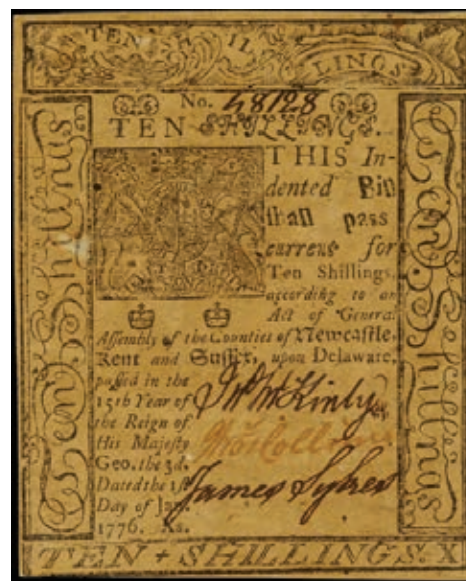 TEN SHILLINGS
No. 48128
TEN SHILLINGS.
THIS In-
dented Bill
shall pass
current for
Ten Shillings,
according to an
Act of General
Assembly of the Counties of Newcastle,
Kent and Sussex, upon Delaware,
passed in the
15th Year of
the Reign of
His Majesty
Geo. the 3d.
Dated the 1st
Day of Jan.
1776.
Jn McKinly
Thos Collins
James Sykes
Ten Shillings
Ten Shillings
TEN + SHILLINGS. X